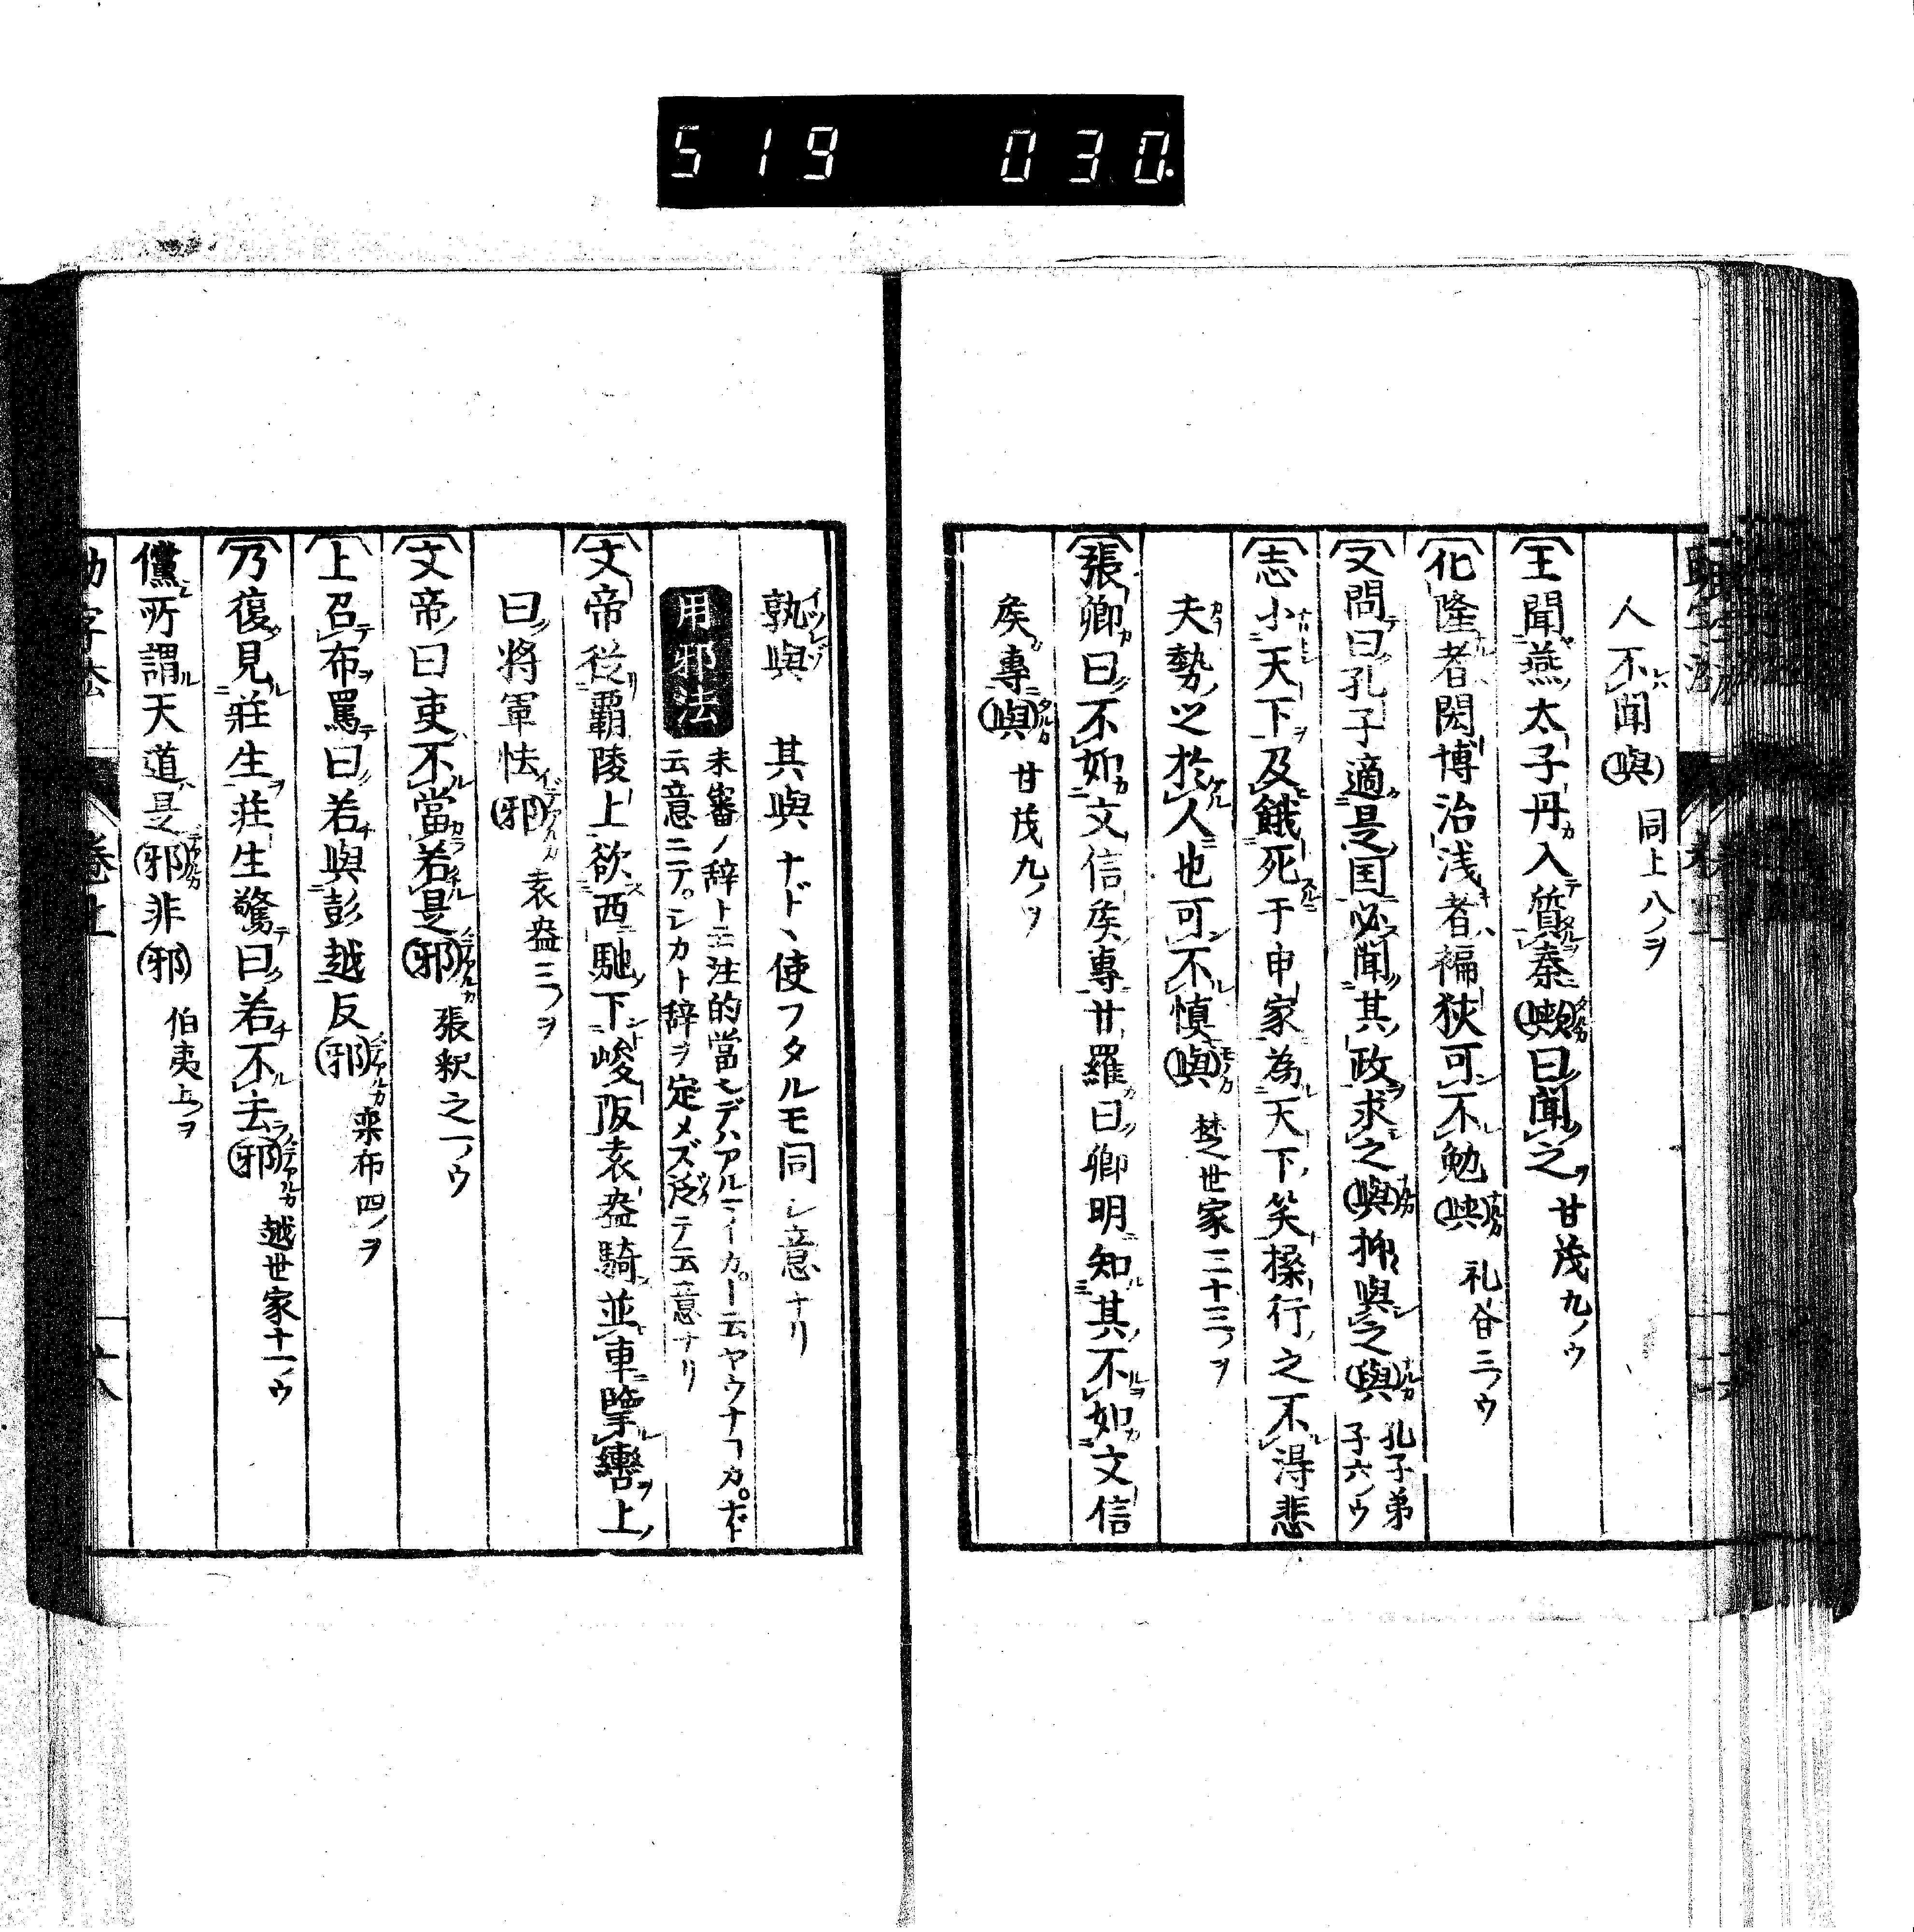 519 030.
人不聞與 同上八ノヲ
王聞燕太子丹入質秦歟曰聞之 甘茂九ノウ
化隆者閎博治浅者褊狭可不勉與 礼谷二ノウ
又問曰孔子適是国必聞其政求之與抑與之與 孔子弟子六ノウ
志小天下及餓死于申家為天下笑操行之不得悲
夫勢之於人也可不慎與 楚世家三十三ノヲ
張卿曰不如文信矦專甘羅曰卿明知其不如文信
矦專與 甘茂九ノヲ
孰與 其與ナド、使フタルモ同シ意ナリ
用邪法
未審ノ辞ト云注的當モデハアル
云意ニテ。シカト辞ヲ定メズ泛テ云意ナリ
文帝従覇陵上欲西馳下峻阪袁盎騎並車擥轡上
曰将軍怯邪 袁盎三ノヲ
文帝曰吏不當若是邪 張釈之一ノウ
上召布罵曰若與彭越反邪 栾布四ノヲ
乃復見莊生莊生驚曰若不去邪 越世家十一ノウ
儻所謂天道是邪非邪 伯夷上ノヲ
助字法 巻上 十八